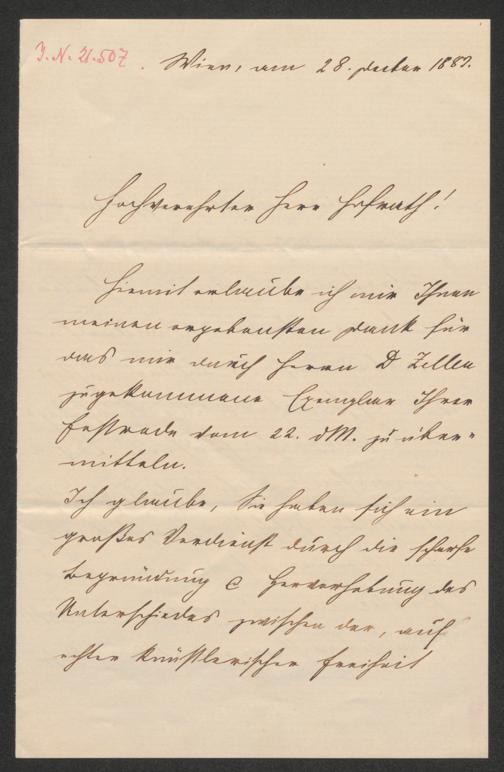 I.N. 21.507
Wien, am 28. Decber 1887.
Hochverehrter Herr Hofrath!
Hiemit erlaube ich mir Ihnen
meinen ergebensten Dank für
das mir durch Herrn D Zeller
zugekommene Exemplar Ihrer
Festrede vom 22. dM. zu über-
mitteln.
Ich glaube, Sie haben sich ein
großes Verdienst durch die scharfe
Begründung & Hervorhebung des
Unterschiedes zwischen der, auf
echter künstlerischer Freiheit